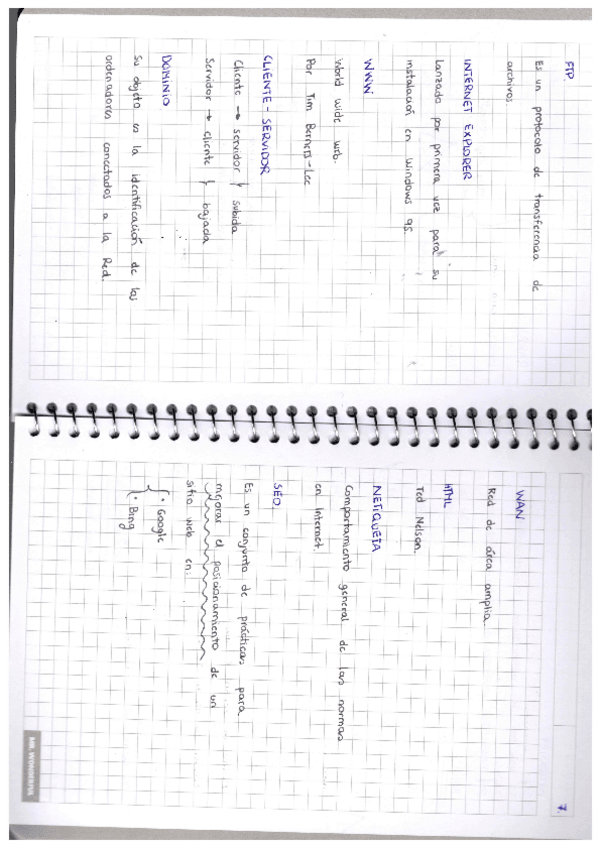 FTP.
Es un protocolo de transferencia de
archivos.
INTERNET EXPLORER
Lanzado por primera vez para su
instalación en Windows 95.
WWW
World wide web.
Por Tim Berners-Lee
CLIENTE - SERVIDOR
Cliente → servidor } subida
Servidor → cliente } bajada
DOMINIO
Su objeto es la identificación de las
ordenadores conectados a la Red.
7.
WAN
Red de área amplia.
HTML
Ted Nelson.
NETIQUETA
Comportamiento general de las normas
en Internet.
SEO
Es un conjunto de prácticas para
mejorar el posicionamiento de un
sitio web en:
{ · Google
· Bing
MR. WONDERFUL